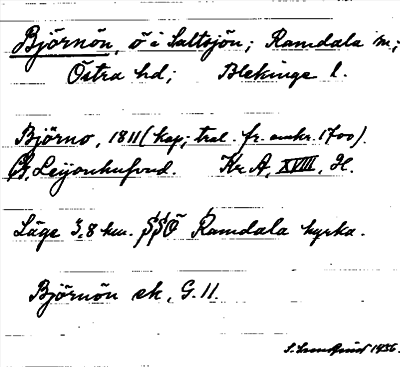 Björnön, ö i Saltsjön; Ramdala sn;
Östra hd; Blekinge l.
Björnö, 1811 (kop; tral. fr. omkr. 1700).
G. Leijonhufvud. Kr. A, XVIII, H.
Läge 3,8 km. SSÖ Ramdala kyrka.
Björnön ek, G. 11.
1936.